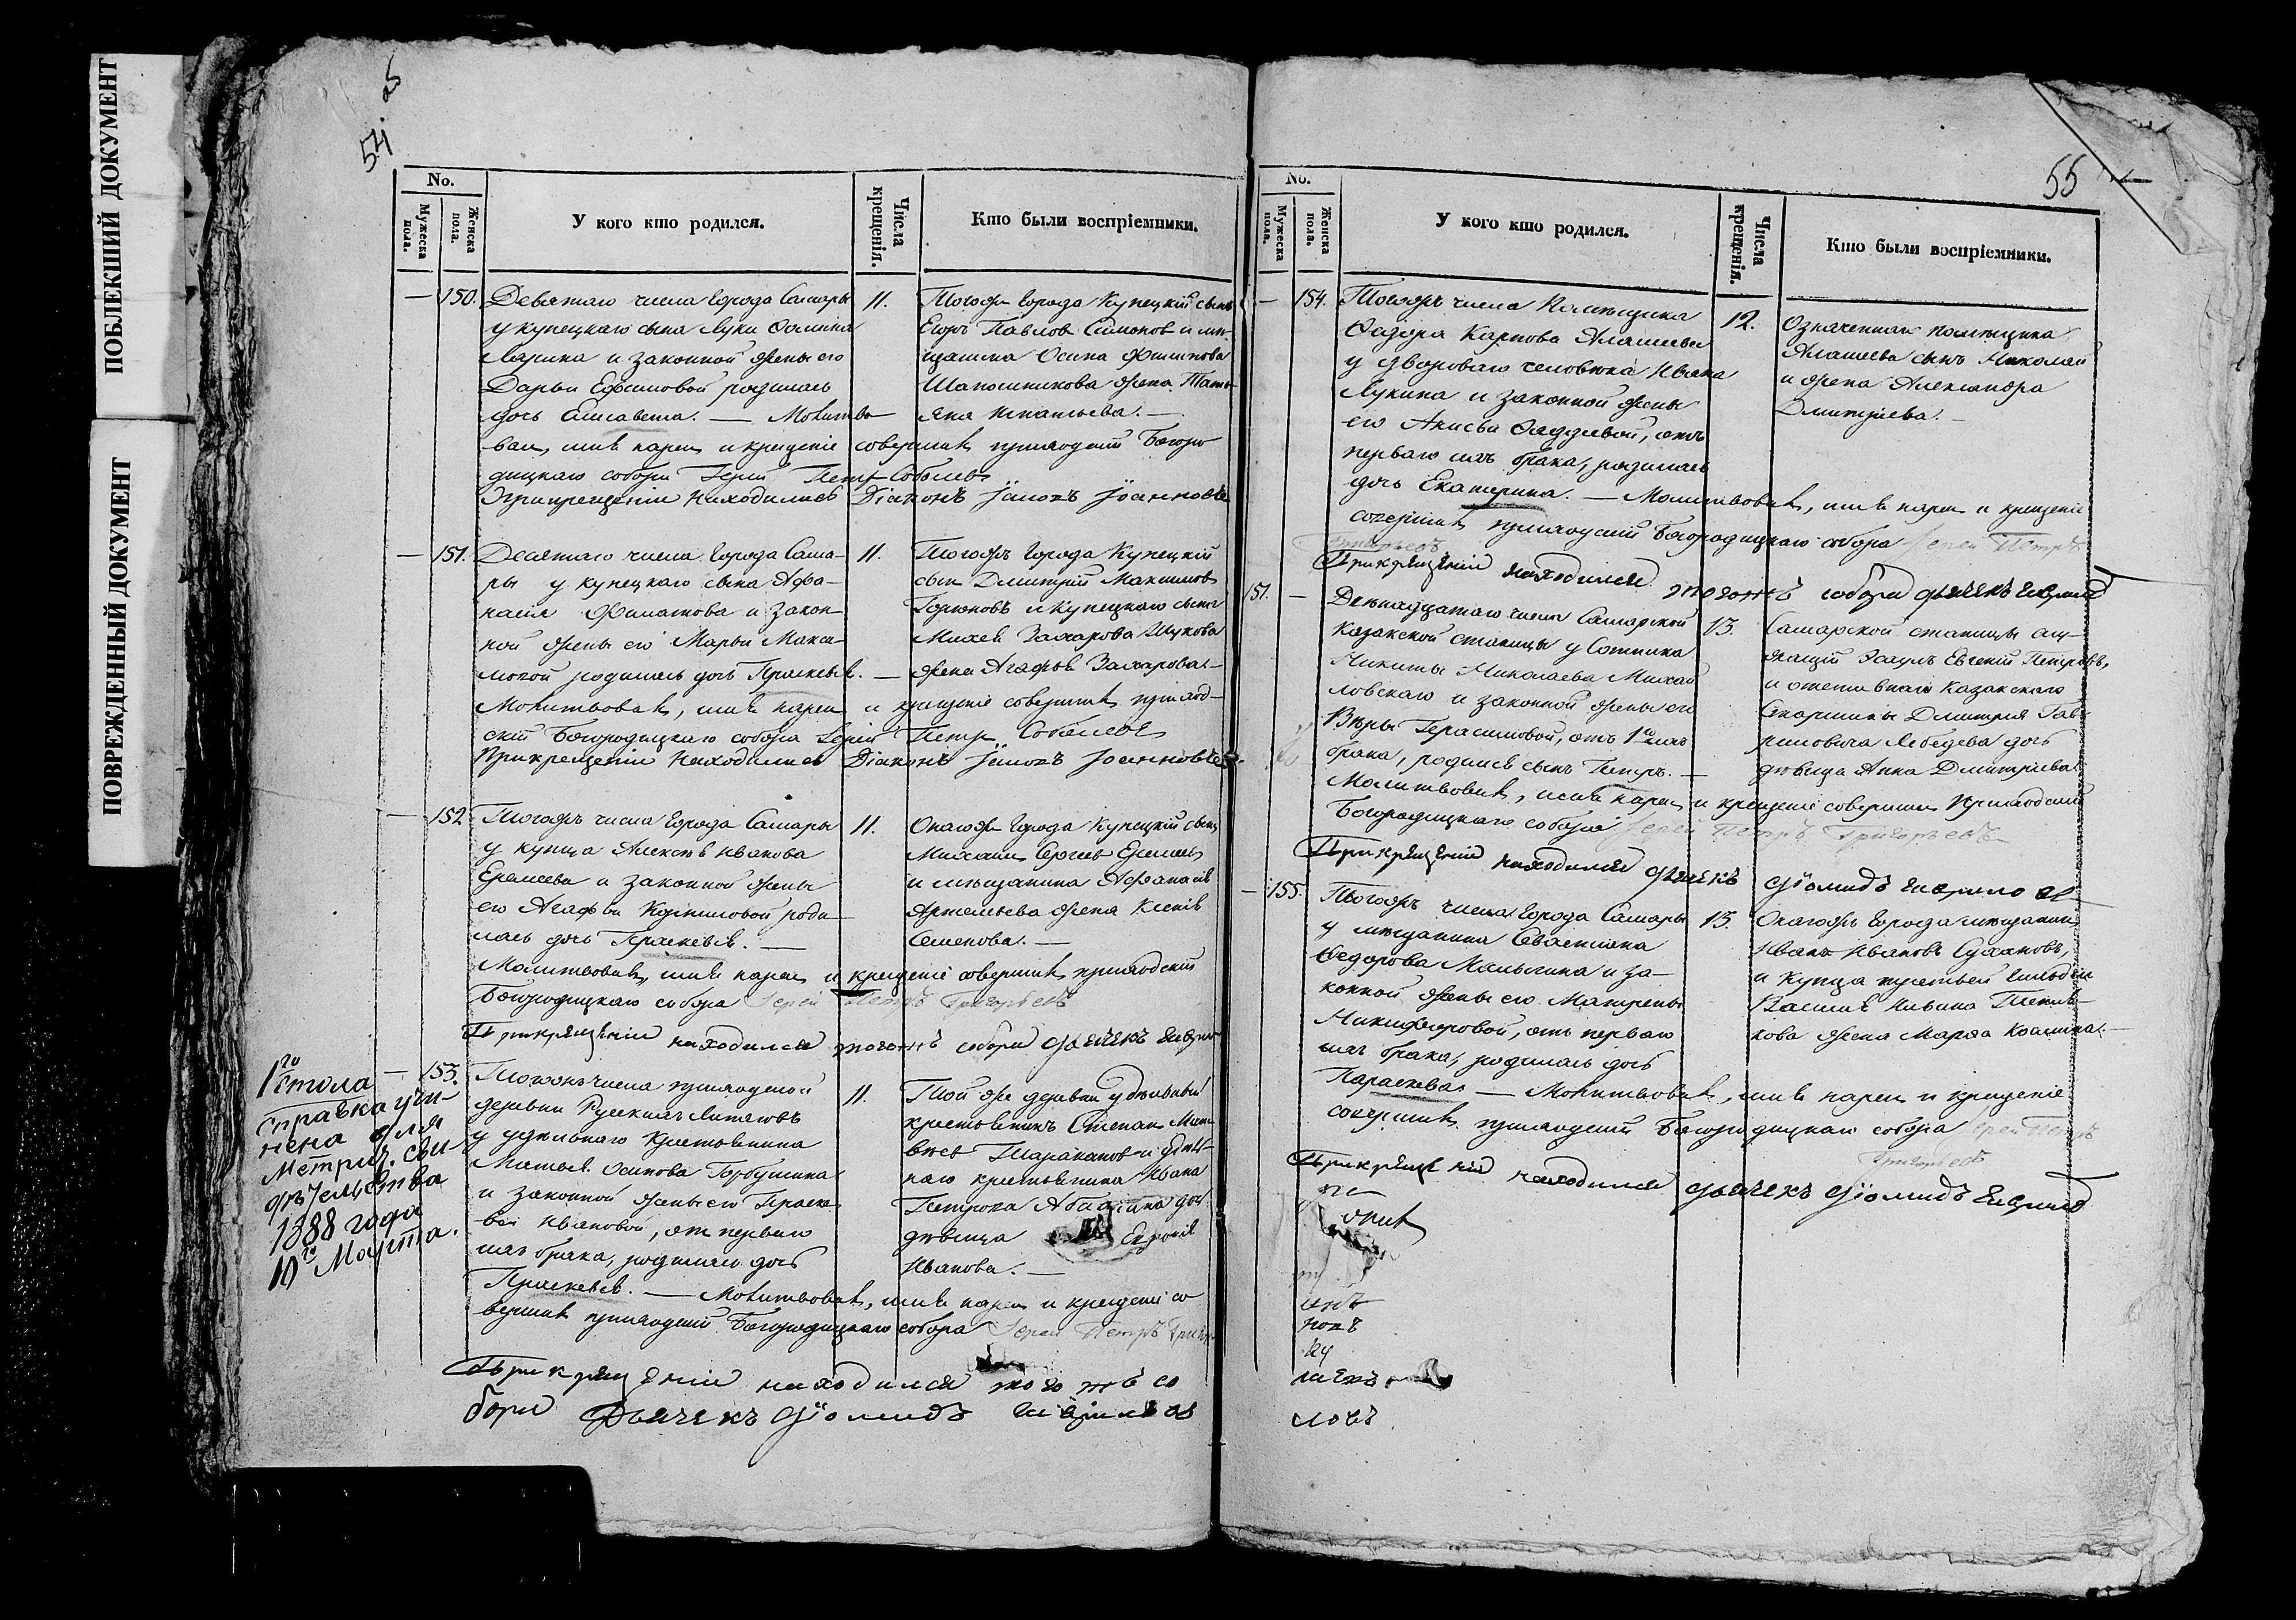 ПОБЛЕКШИЙ ДОКУМЕНТ
ПОВРЕЖДЕННЫЙ ДОКУМЕНТ
54
No.
Мужеска пола.
Женска пола.
У кого кто родился.
Числа крещенія.
Кто были воспріемники.
— 150.
Девятаго числа города Самары
у купецкаго сына Луки
Ларина и законной жены его
Дарьи Ефимовой родилась
дочь Елисавета. — Молитво
вал, имя нарек и крещеніе совершил приходскій Богоро
дицкаго собора Іерей Петр Соболев
При крещеніи находился Діаконъ Іоанновъ
11.
Тогоже города Купецкій сынъ
Егоръ Павлов Симонов и мѣ-
щанина Осипа Филипова
Шапошникова жена Тать-
яна Игнатьева. —
— 151.
Десятаго числа города Сама-
ры у купецкаго сына Афа-
насія Филатова и закон-
ной жены его Марьи Макси-
мовой родилась дочь Прасковья. —
Молитвовал, имя нарек и крещеніе совершил приход-
скій Богородицкаго собора Іерей Петр Соболевъ
При крещеніи находился Діаконъ Іоанновъ
11.
Тогожъ города Купецкій
сын Дмитрій Максимов
Горюновъ и купецкаго сына
Михея Захарова Шукова
жена Агафья Захарова. —
— 152
Тогожъ числа города Самары
у купца Алексѣя Иванова
Еремеева и законной жены
его Агафьи Козминовой роди-
лась дочь Прасковья. —
Молитвовал, имя нарек и крещеніе совершил приходскій
Богородицкаго собора Іерей Петръ Григорьевъ
При крещеніи находился тогожъ собора дьячекъ
11.
Онагоже города Купецкій сынъ
Михаил Сергѣев Еремеев
и мѣщанина Афанасія
Артемьева жена Ксенія
Семенова. —
1го стола
справка учи-
нена для
метрич. сви-
дѣтельства
1888 года
10го Марта.
— 153.
Тогожъ числа приходской
деревни Рускихъ Липяговъ
у удѣльнаго крестьянина
Матвѣя Осипова Горбушина
и законной жены его Праско-
вьи Ивановой, от перваго
ихъ брака, родилась дочь
Прасковья. — Молитвовал, имя нарек и крещеніе со
вершил приходскій Богородицкаго собора Іерей Петръ
При крещеніи находился того жъ со
бора Дьячекъ Діомидъ
11.
Той же деревни удѣльный
крестьянинъ Степан
Тараканов и удѣль-
наго крестьянина Ивана
Петрова дочь
дѣвица
Иванова. —
55
No.
Мужеска пола.
Женска пола.
У кого кто родился.
Числа крещенія.
Кто были воспріемники.
— 154.
Тогожъ числа Помѣщика
Федора Карпова Алашеева
у двороваго человѣка Ивана
Лукина и законной жены
его Анисьи Фаддѣевой, отъ
перваго ихъ брака, родилась
дочь Екатерина. — Молитвовал, имя нарек и крещеніе
совершил приходскій Богородицкаго собора Іерей Петръ
Григорьевъ
При крещеніи находился тогожъ собора дьячекъ
12.
Означеннаго помѣщика
Алашеева сынъ Николай
и жена Александра
Дмитріева. —
151. —
Двенадцатаго числа Самарской
Казакской станицы у Сотника
Никиты Николаева Михай
ловскаго и законной жены его
Вѣры Герасимовой, отъ 1го ихъ
брака, родился сынъ Петръ. —
Молитвовал, имя нарек и крещеніе совершил Приходскій
Богородицкаго собора Іерей Петръ Григорьевъ
При крещеніи находился дьячекъ Діомидъ
13.
Самарской станицы слу-
жащій Эсаулъ Евгеній Петровъ,
и отставнаго Казакскаго
Старшины Дмитрія Гав-
риловича Лебедева дочь
дѣвица Анна Дмитріева.
— 155.
Тогожъ числа города Самары
у мѣщанина Севастьяна
Федорова Малыгина и за-
конной жены его Матрены
Никифоровой, отъ перваго
ихъ брака, родилась дочь
Параскева. — Молитвовал, имя нарек и крещеніе
совершил приходскій Богородицкаго собора Іерей Петръ
Григорьевъ
При крещеніи находился дьячекъ Діомидъ
13.
Онагожъ города мѣщанинъ
Иванъ Ивановъ Судаковъ,
и купца третьей гильдіи
жена Марфа